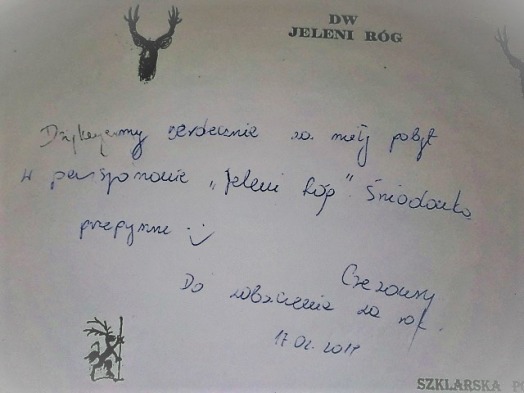 DW
JELENI RÓG
Dziękujemy serdecznie za miły pobyt
w pensjonacie „Jeleni Róg". Śniadanka
przepyszne
Do zobaczenia za rok.
17.02.2019
SZKLARSKA PO